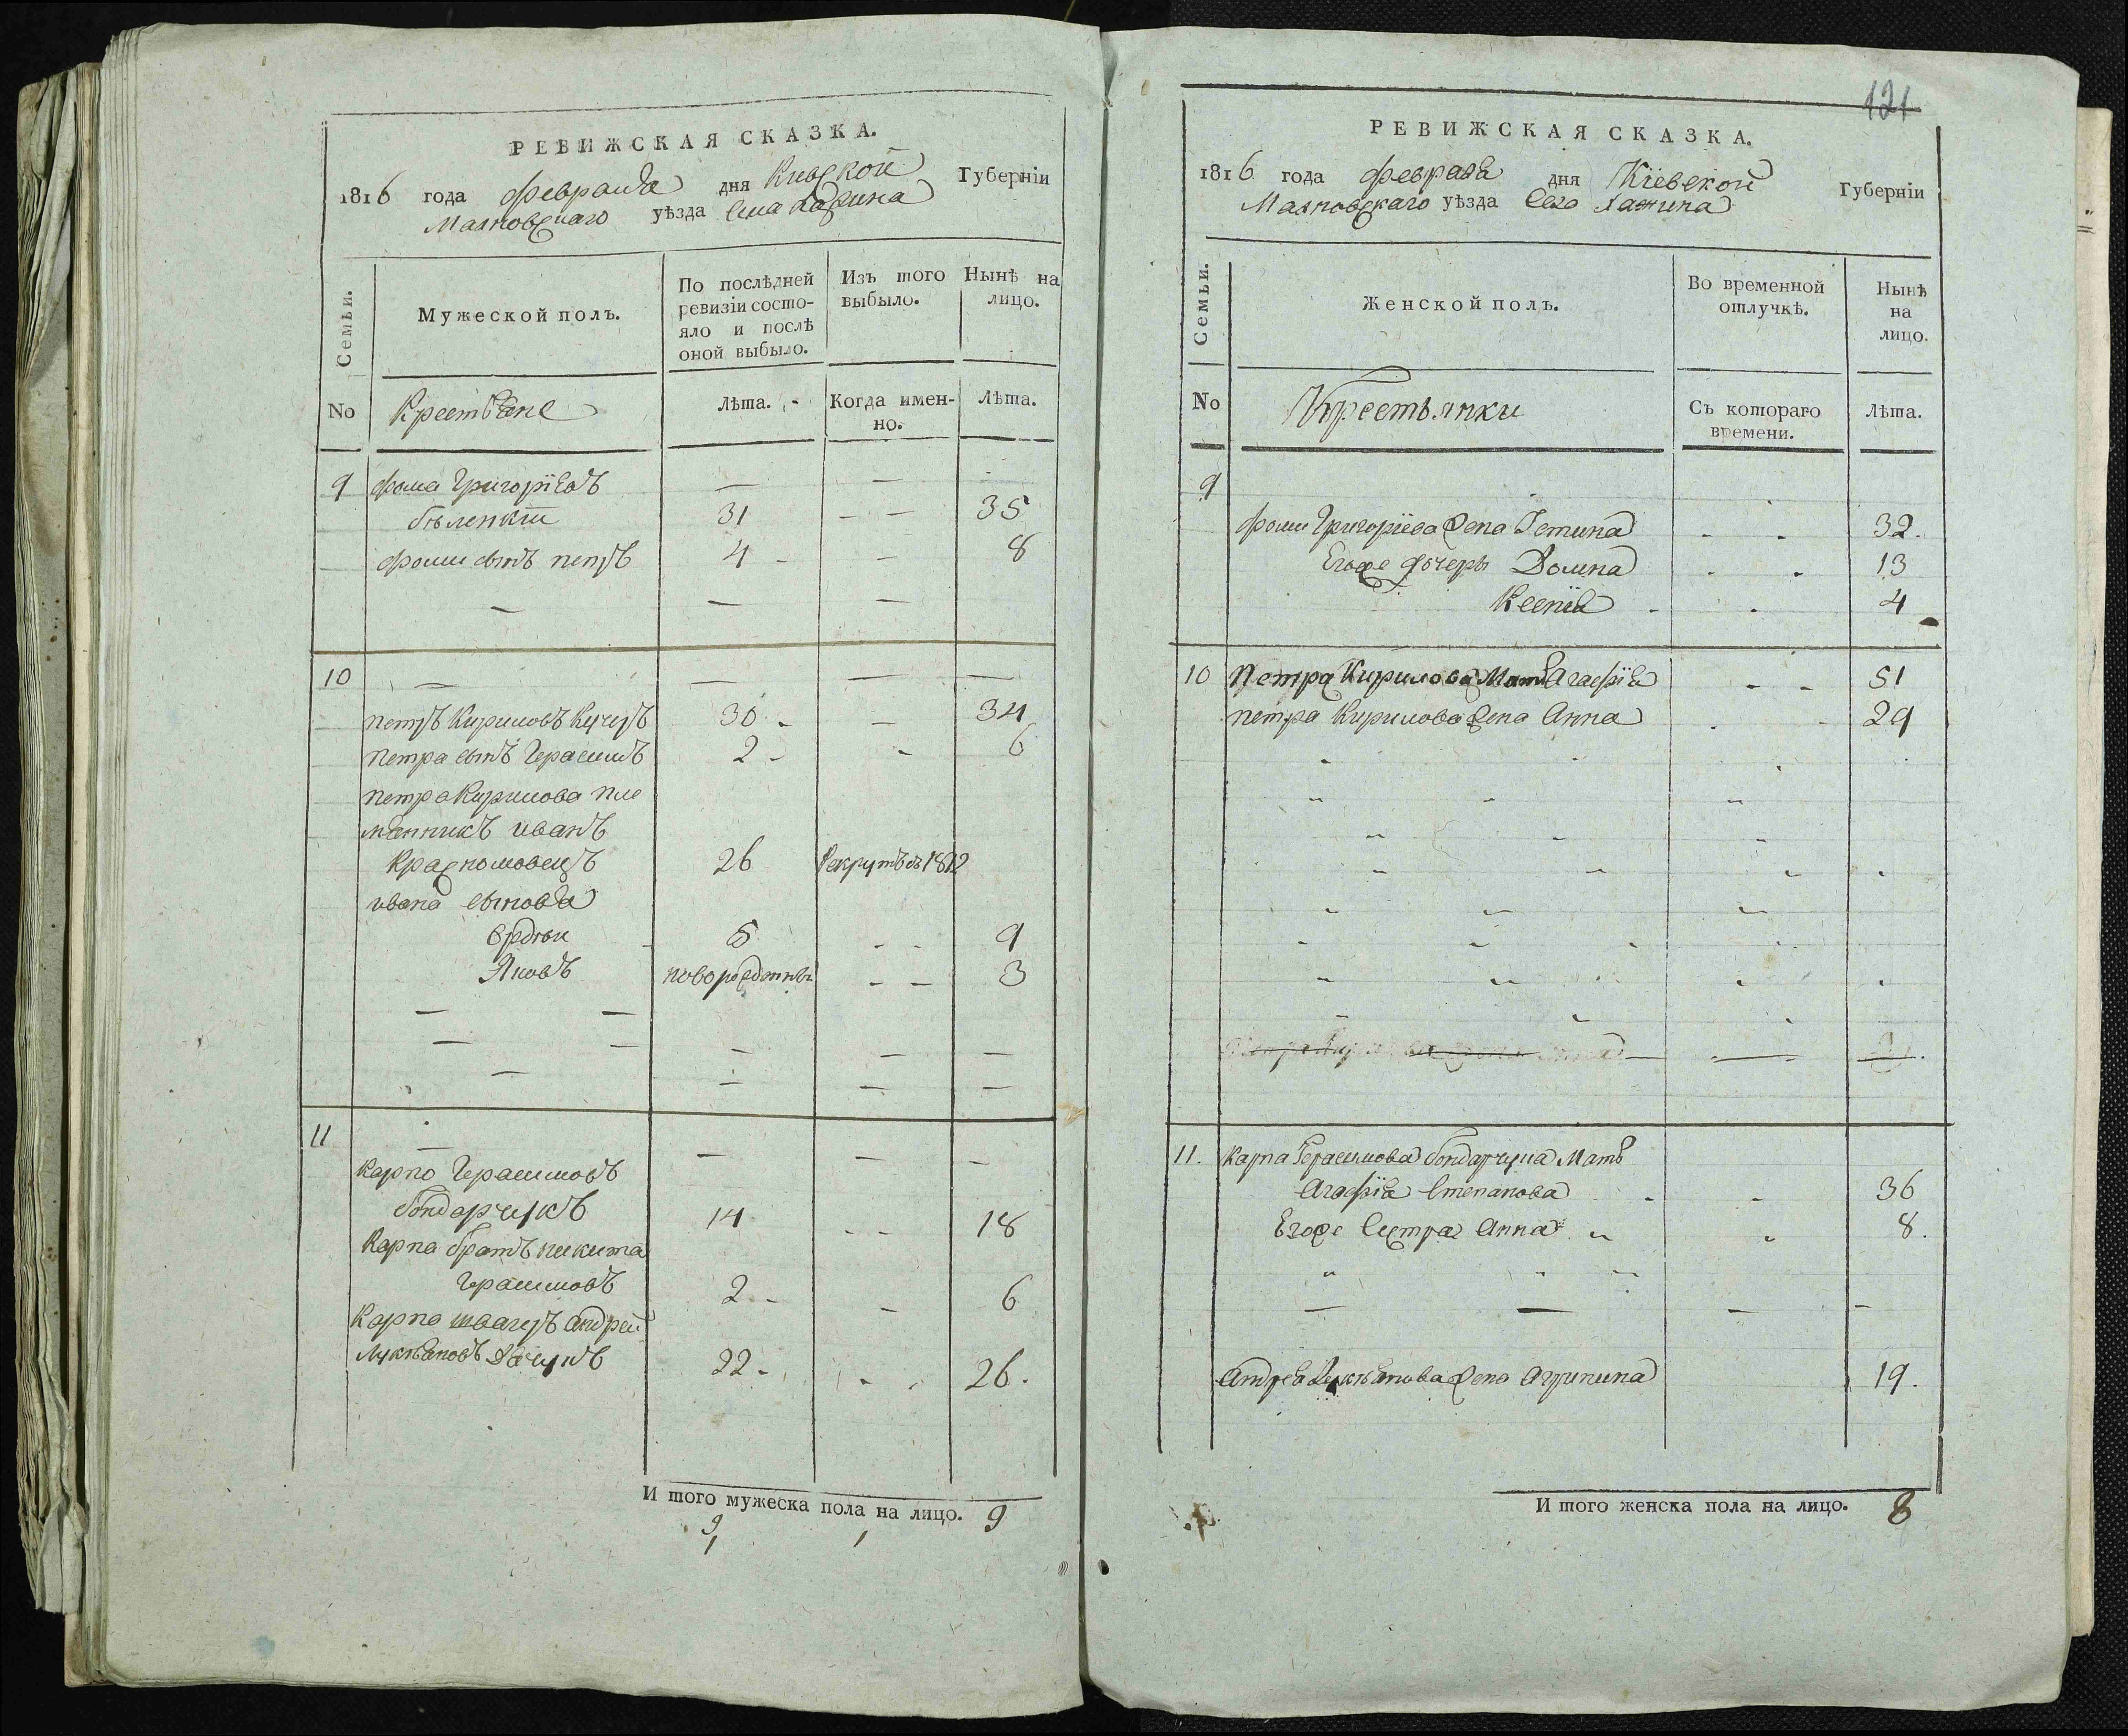 РЕВИЖСКАЯ СКАЗКА.
1816 года февраля дня Киевской Губерніи
Махновскаго уѣзда Села
Семьи.
Мужеской полъ.
По послѣдней ревизіи состо-
яло и послѣ
оной выбыло.
Изъ того
выбыло.
Нынѣ на
лицо.
No Крестьяне
Лѣта.
Когда имен-
но.
Лѣта.
9 Фома Григоріевъ
бѣленкій 31 — — 35
Фомы сынъ петръ 4 — — 8
10
петръ Кириловъ Кучеръ 30 — 34
петра сынъ Герасимъ 2 - 6
петра Кирилова пле
мянникъ иванъ
26 рекрутъ въ 1812
ивана сыновья
5 - - 9
Яковъ новорожденны - - 3
11
Карпо Герасимовъ
бондарчукъ 14 - - 18
Карпа братъ никита
Герасимовъ 2 - - 6
Карпа швагеръ андрей
Лукьяновъ 22 - - 26.
И того мужеска пола на лицо. 9
9
1 1
121
РЕВИЖСКАЯ СКАЗКА.
1816 года февраля дня Кіевской Губерніи
Махновскаго уѣзда Села
Семьи.
Женской полъ.
Во временной
отлучкѣ.
Нынѣ
на
лицо.
No Крестьянки
Съ котораго
времени.
Лѣта.
9
Фомы Григоріева жена 32.
Егоже дочери Домна 13
Ксенія 4
10 Петра Кирилова Мать Агафія 51
петра Кирилова жена Анна 29
11. Карпа Герасимова бондарчука Мать
Агафія Степанова 36
Егоже Сестра Анна 8.
Андрея Лукьянова жена Агрипина 19.
И того женска пола на лицо. 8